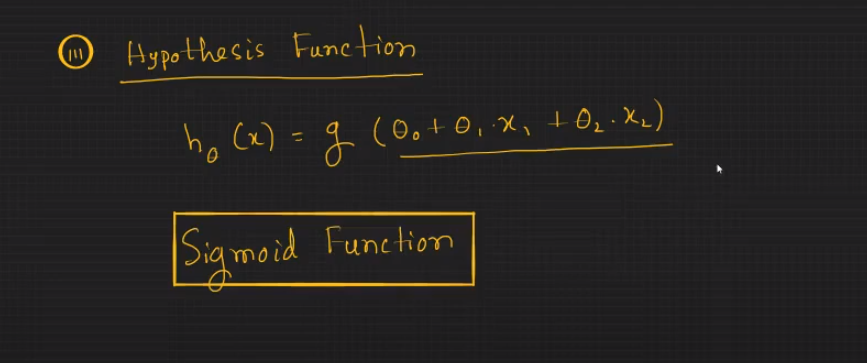 (III) Hypothesis Function
hθ(x) = g (θ₀ + θ₁.x₁ + θ₂.x₂)
Sigmoid Function